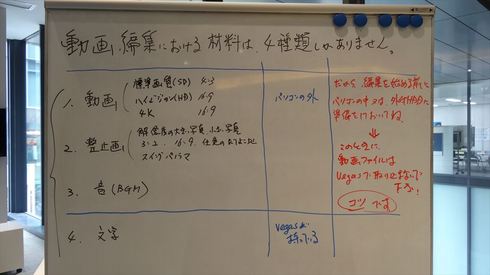 動画編集における材料は、4種類しかありません。
1. 動画
標準画質(SD) 4:3
ハイビジョン(HD) 16:9
4K 16:9
パソコンの外
2. 静止画
解像度の大きい写真、小さい写真
3:2、16:9
スイングパノラマ
3. 音(BGM)
4. 文字
Vegasが
持っている
だから、編集を始める前に
パソコンの中又は、外付HDDに
準備しておいてね。
↓
動画ファイルは
Vegasで取り込
コツです